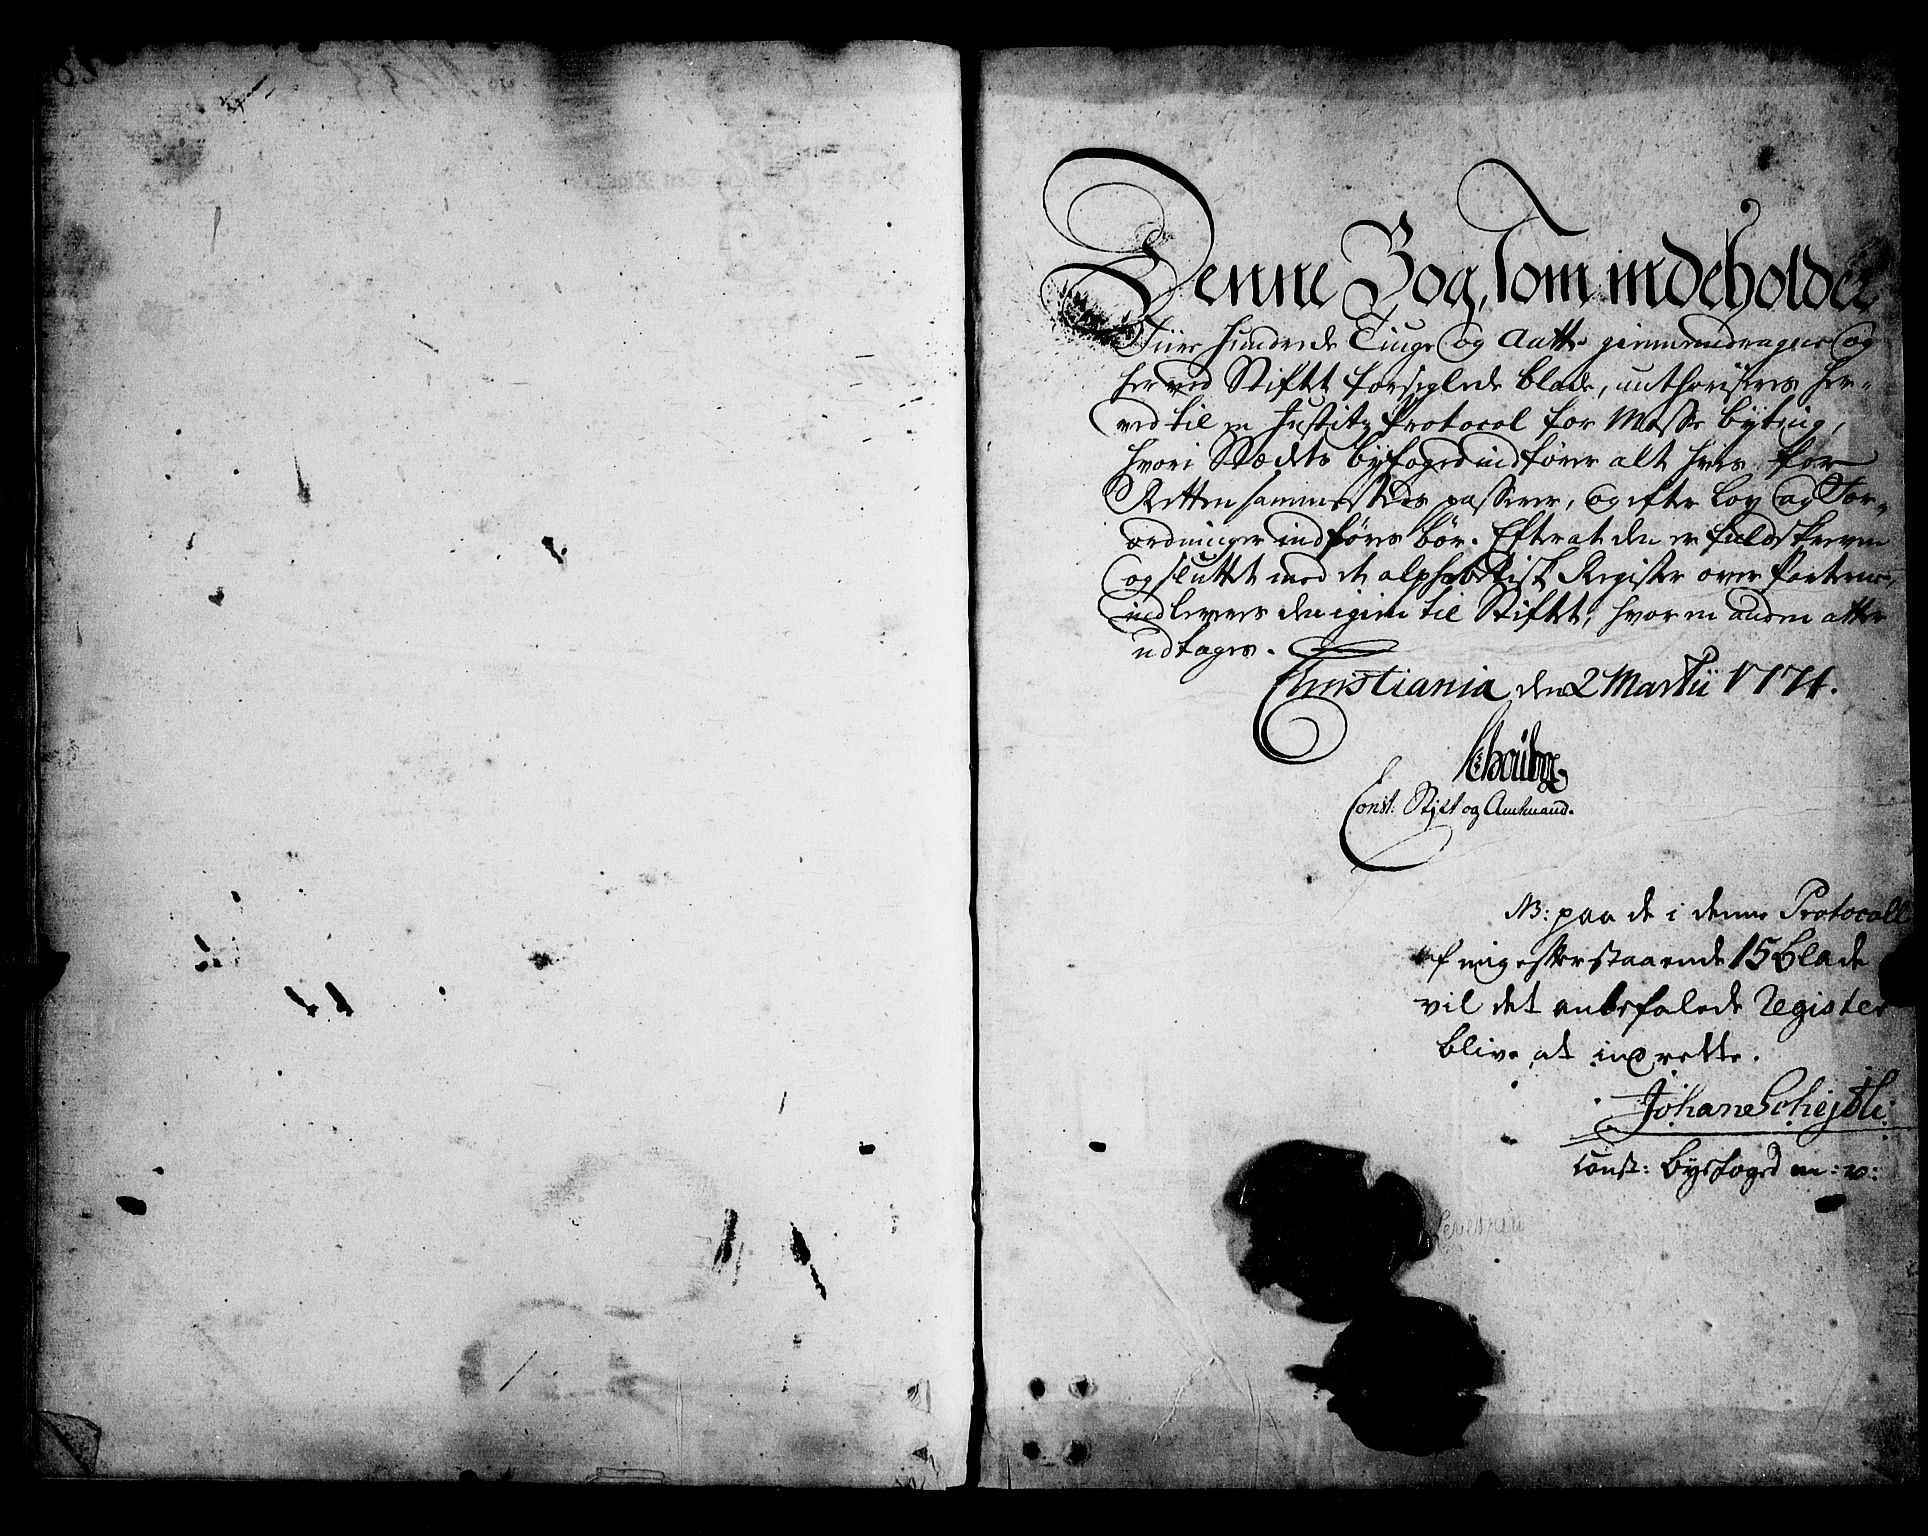 Denne Bog, som indeholder
Fiire Hundrede Tiuge og Aatte giennemdragne og
her ved Stiftet forseglede blade, authoriseres her-
ved til en Justitz Protocol for Mosse byting,
hvori Stædets byfoged indfører alt hvis for
Retten sammesteds passerer, og efter Lov og For-
ordninger indføres bør. Efter at den er fuldskreven
og sluttet med et alphabetisk Register over Parterne,
indleveres den igien til Stiftet, hvor en anden atter
udtages.
Christiania den 2 Martii 1771.
Const: Stift og Amtmand.
NB: paa de i denne Protocoll
af mig efterstaaende 15 blade
vil det anbefalede Register
blive at indrette.
Johane Schejtli
const: byefoged m: v: